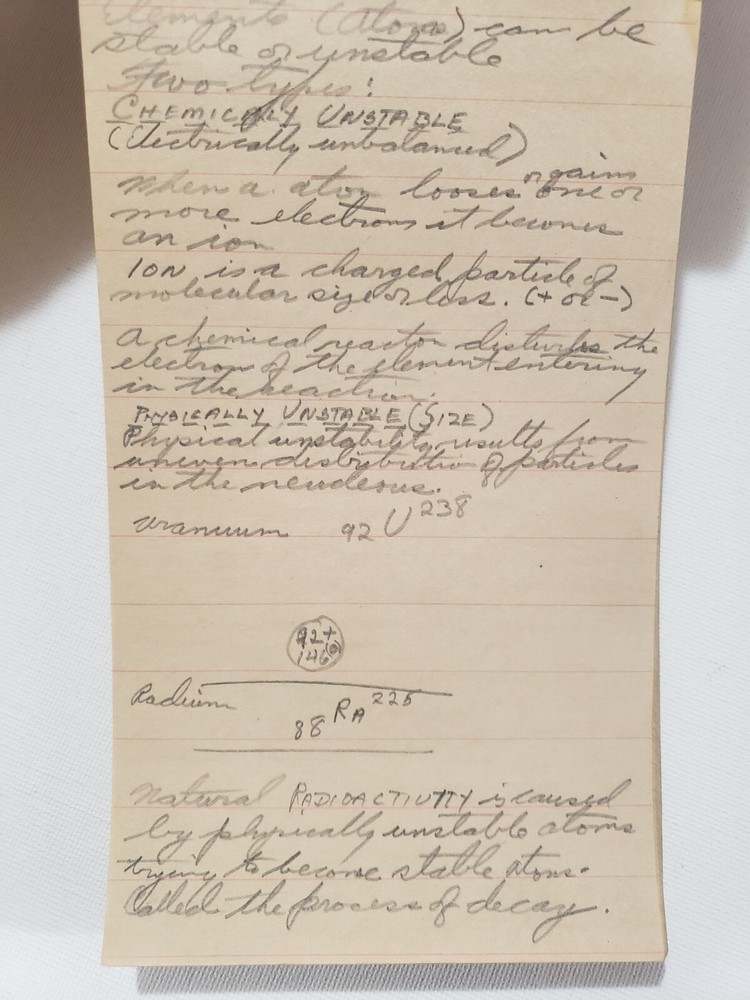 Elements (Atoms) can be
stable or unstable
Two types:
CHEMICALLY UNSTABLE
(Electrically unbalanced)
or gains
When a atom looses one or
more electrons it becomes
an ion
ION is a charged particle of
molecular size or less. (+ or -)
A chemical reactor disturbs the
electron of the element entering
in the reaction.
PHYSICALLY UNSTABLE (SIZE)
Physical unstability results from
uneven distribution of particles
in the
Uranium 92 U 238
92+
146
Radium
88 RA 225
Natural RADIOACTIVITY is caused
by physically unstable atoms
trying to become stable atoms.
Called the process of decay.